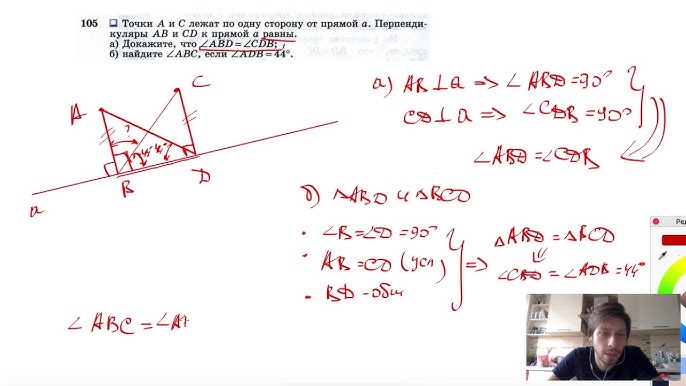 105 Точки A и C лежат по одну сторону от прямой a. Перпенди-
куляры AB и CD к прямой a равны.
а) Докажите, что ∠ABD = ∠CDB;
б) найдите ∠ABC, если ∠ADB = 44°.
C
A
?
44° 44°
B
D
a
а) AB ⊥ a => ∠ABD = 90°
CD ⊥ a => ∠CDB = 90°
∠ABD = ∠CDB
б) △ABD и △BCD
• ∠B = ∠D = 90°
• AB = CD (усл)
• BD - общ
=> △ABD = △BCD
∠CBD = ∠ADB = 44°
∠ABC = ∠A
Ред